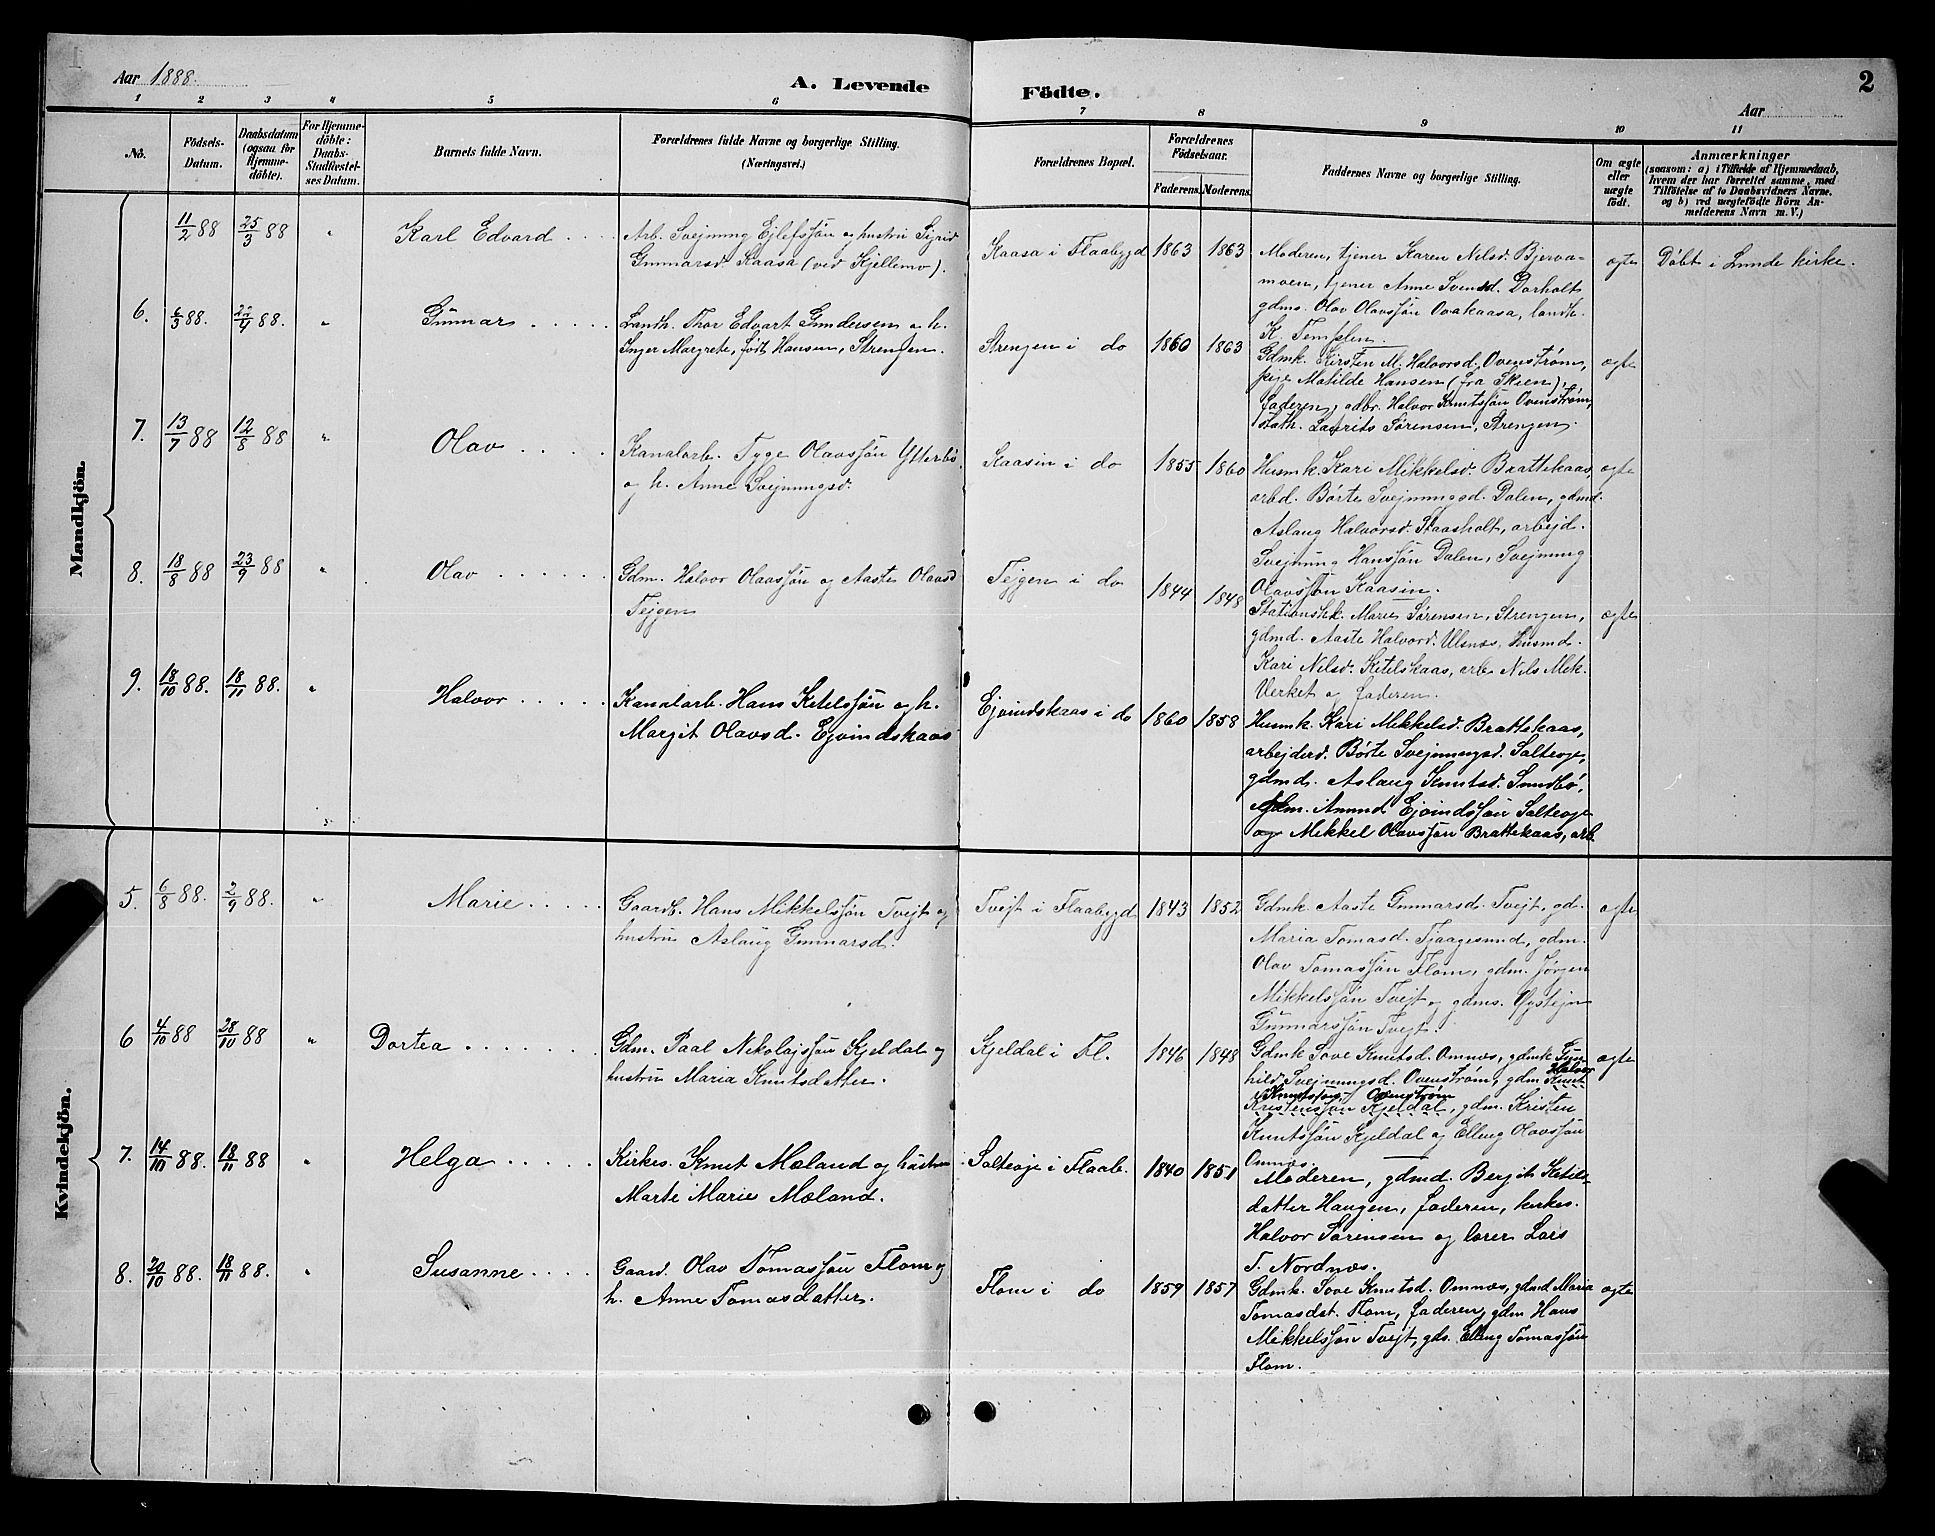 Aar 1888.
A. Levende Födte.
2
Aar
1 2 3 4 5 6 7 8 9 10 11
No.
Födsels-
Datum.
Daabsdatum
(ogsaa for
Hjemme-
döbte).
For Hjemme-
döbte:
Daabs-
Stadfæstel-
ses Datum.
Barnets fulde Navn.
Forældrenes fulde Navne og borgerlige Stilling.
(Næringsvei.)
Forældrenes Bopæl.
Forældrenes
Födselsaar.
Faderens. Moderens.
Faddernes Navne og borgerlige Stilling.
Om ægte
eller
uægte
födt.
Anmærkninger
(saasom: a) i Tilfælde af Hjemmedaab,
hvem der har forrettet samme, med
Tilföielse af to Daabsvidners Navne,
og b) ved uægtefödte Börn An-
melderens Navn m. V.)
Mandkjön.
11/2 88 25/3 88 " Karl Edvard
Arb. Svejnung Ejlefssøn og hustru Sigrid
Gunnarsd. Kaasa (ved Kjellemo).
Kaasa i Flaabygd 1863 1863
Moderen, tjener Karen Nilsd. Bjerva-
moen, tjener Anne Svensd. Dorholt
gdms. Olav Olavssøn Ovakaasa, landh.
K. Templen.
ægte
Döbt i Lunde kirke.
6. 6/3 88. 22/4 88. " Gunnar
Landh. Thor Edvart Gundersen og h.
Inger Margrete, født Hansen, Strengen.
Strengen i do 1860 1863
Gdmk. Kirsten M. Halvorsd. Ovenstrøm,
pige Matilde Hansen (fra Skien),
faderen, gdbr. Halvor Knutssøn Ovenstrøm,
stath. Laurits Sørensen, Strengen.
ægte
7. 13/7 88 12/8 88 " Olav
Kanalarb. Tyge Olavssøn Ytterbø
og h. Anne Svejnungsd.
Kaasin i do 1855 1860
Husmk. Kari Mikkelsd. Brattekaas,
arbd. Børte Svejnungsd. Dalen, gdmd.
Aslaug Halvorsd. Staasholt, arbejd.
Svejnung Hanssøn Dalen, Svejnung
Olavssøn Kaasin.
ægte
8. 18/8 88 23/9 88 " Olav
Gdm. Halvor Olavssøn og Aaste Olavsd
Tejgen
Tejgen i do 1844 1848
Stationshk. Marie Sørensen, Strengen,
gdmd. Aaste Halvord. Ulsnæs, husmd.
Kari Nilsd. Ketelskaas, arb. Nils Mik.
Verket og faderen.
ægte
9. 18/10 88. 18/11 88. " Halvor
Kanalarb. Hans Ketelssøn og h.
Margit Olavsd. Ejvindskaas
Ejvindskaas i do 1860 1858
Husmk. Kari Mikkelsd. Brattekaas,
arbejderd. Børte Svejnungsd. Salterøje,
gdmd. Aslaug Knutsd. Sundbö,
gdm. Amund Ejvindssøn Salterøje
og Mikkel Olavssøn Brattekaas, arb.
Kvindekjön.
5. 6/8 88. 2/9 88. " Marie
Gaardb. Hans Mikkelssøn Tvejt og
hustru Aslaug Gunnarsd.
Tvejt i Flaabygd 1843 1852
Gdmk. Aaste Gunnarsd. Tvejt, gd.
Maria Tomasd. Tjaagesund, gdm.
Olav Tomassøn Flom, gdm. Jørgen
Mikkelssøn Tvejt og gdms. Øystejn
Gunnarssøn Tvejt.
ægte
6 4/10 88 28/10 88 " Dortea
Gdm. Paal Nikolajssøn Kjeldal og
hustru Maria Knutsdatter.
Kjeldal i Fl. 1846 1848
Gdmk Tove Knutsd. Omnæs, gdmk Gun-
hild Svejnungsd. Ovenstrøm, gdm Halvor Knut
Knutssøn Ovenstrøm
Kristenssøn Kjeldal, gdm. Kristen
Knutssøn Kjeldal og Elling Olavssøn
Omnæs.
ægte
7. 14/10 88. 18/11 88 " Helga
Kirkes. Knut Mæland og hustru
Marte Marie Mæland.
Salterøje i Flaab. 1840 1851
Moderen, gdmd. Berjit Ketils-
datter Haugen, faderen, kirkes.
Halvor Sørensen og lærer Lars
T. Nordnæs.
8. 20/10 88. 18/11 88. " Susanne
Gaard. Olav Tomassøn Flom og
h. Anne Tomasdatter.
Flom i do 1859 1857
Gdmk. Tove Knutsd. Omnæs, gdmd Maria
Tomasdt. Flom, faderen, gdm Hans
Mikkelssøn Tvejt, gds. Elling Tomassøn
Flom.
ægte